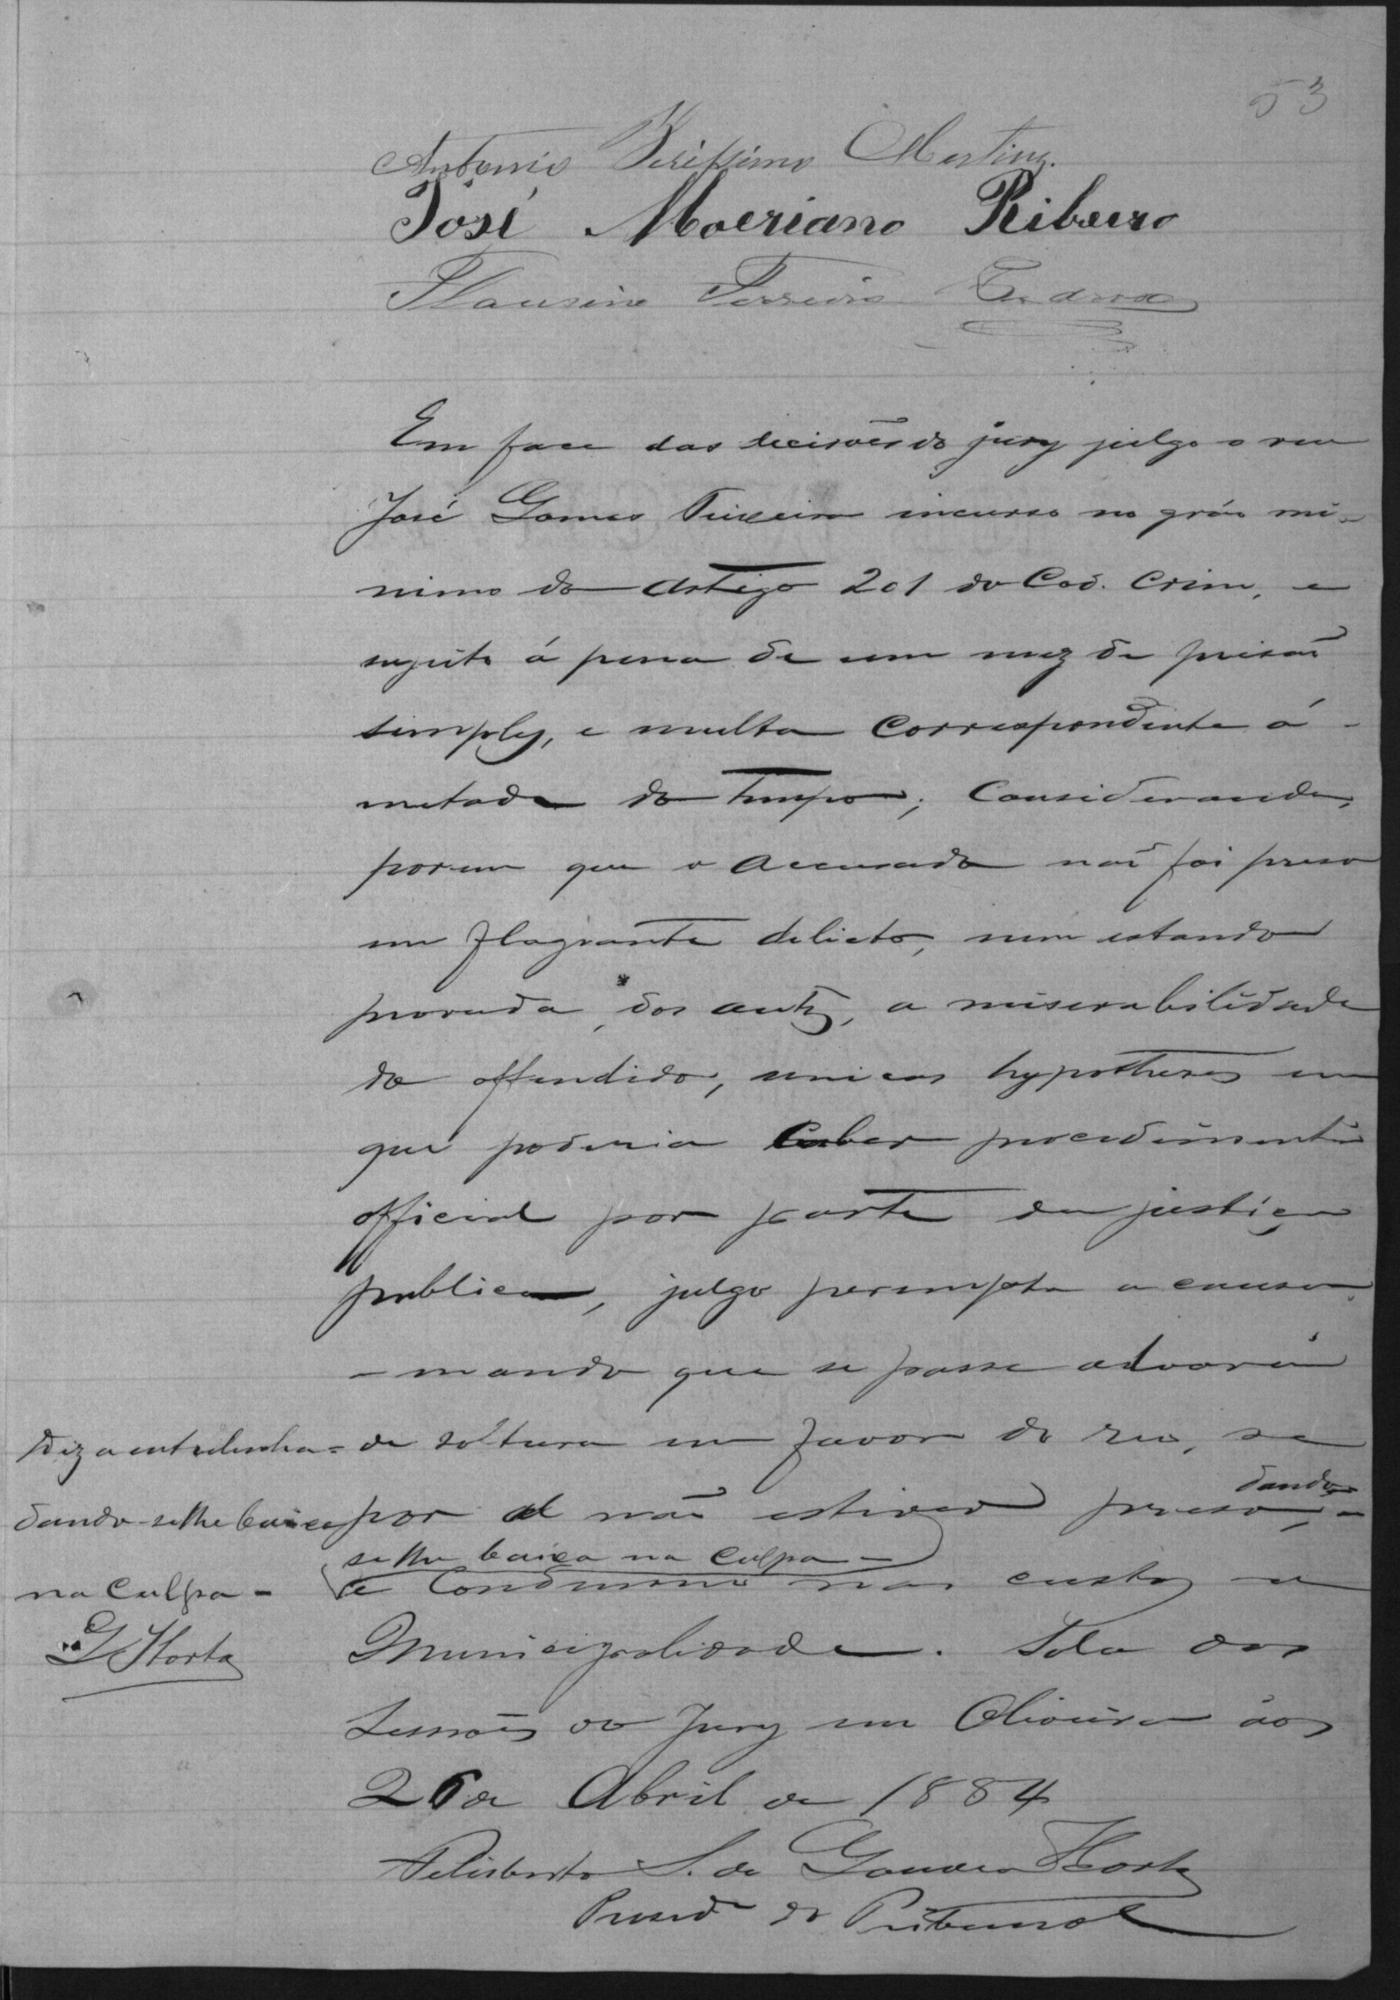 53
Antonio Verissimo Martins.
José Moeriano Ribeiro
Flausino Ferreira
Em face das decisões do jury julgo o reu
José Gomes Teixeira incurso no gráo mi-
nimo do Artigo 201 do Cod. Crim, e
sugeito á pena de um mez de prisaõ
simples, e multa correspondente á
metade do tempo; Considerando,
porem que o accusado naõ foi preso
em flagrante delicto, nem estando
provada, dos autos, a miserabilidade
do offendido, unicas hypotheses em
que poderia caber procedimento
official por parte da justiça
publica, julgo perempta a causa
- mando que se passe alvará
de soltura em favor do reo, se
por al naõ estiver preso, dando-
se lhe baixa na culpa -
e Condemno nas custas a
Municipalidade. Sala das
Sessões do Jury em Oliveira aos
26 de Abril de 1884
Felisberto S. de Gouvea Horta
Presid.e do Tribunal
Diz a entrelinha =
dando-se lhe baixa
na culpa =
G Horta